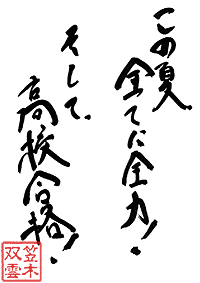 この夏、
全てに全力!
そして、
高校合格!
笠木
双雲